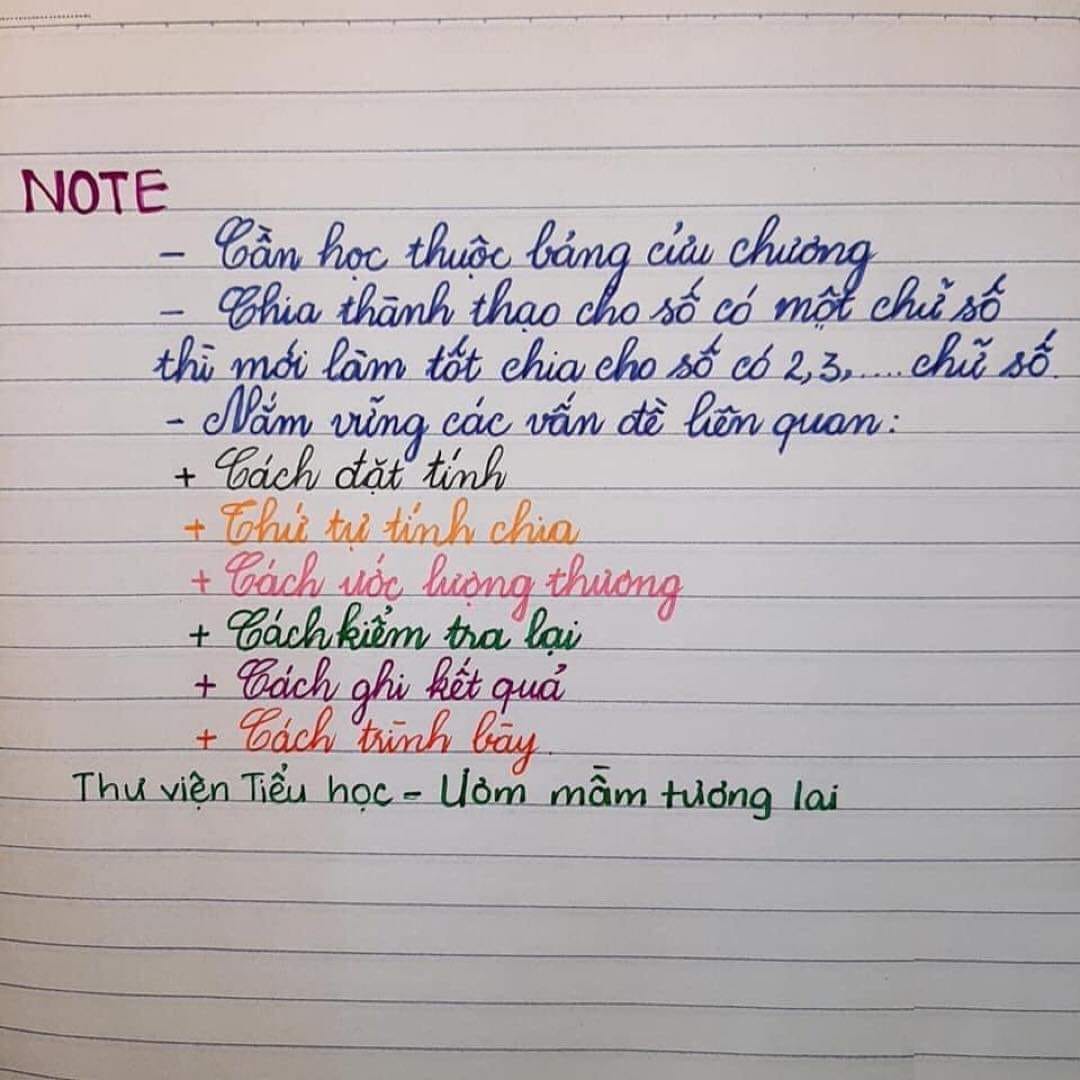 NOTE
- Cần học thuộc bảng cửu chương
- Chia thành thạo cho số có một chữ số
thì mới làm tốt chia cho số có 2,3,.... chữ số.
- Nắm vững các vấn đề liên quan:
+ Cách đặt tính
+ Thứ tự tính chia
+ Cách ước lượng thương
+ Cách kiểm tra lại
+ Cách ghi kết quả
+ Cách trình bày.
Thư viện Tiểu học - Ươm mầm tương lai